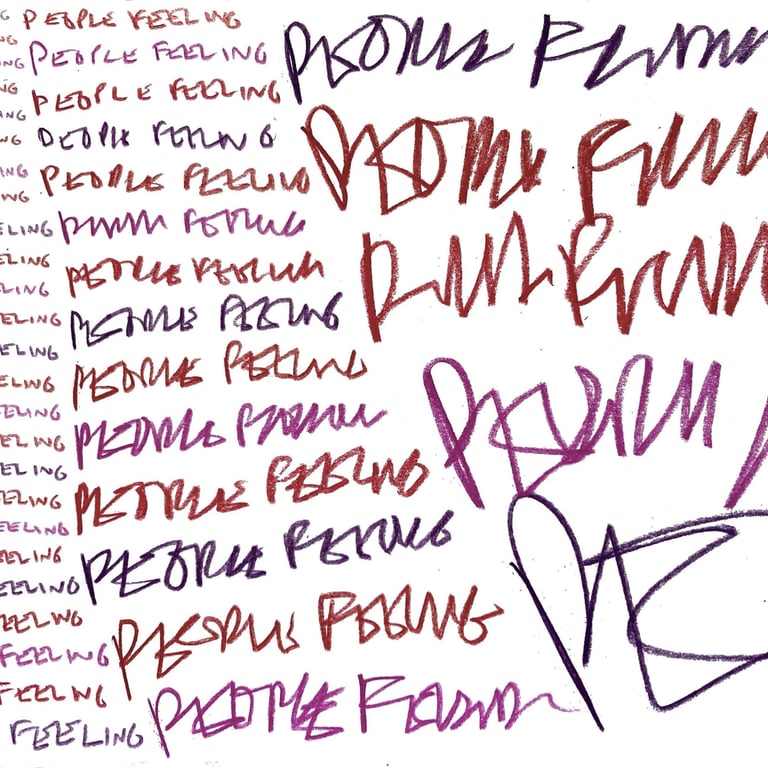 G
NG
NG
NG
NG
NG
ING
NG
ELING
ELING
LING
EELING
EELING
EELING
FEELING
EELING
EELING
EELING
FEELING
EELING
EELING
FEELING
FEELING
FEELING
FEELING
PEOPLE FEELING
PEOPLE FEELING
PEOPLE FEELING
PEOPLE FEELING
PEOPLE FEELING
PEOPLE FEELING
PEOPLE FEELING
PEOPLE FEELING
PEOPLE FEELING
PEOPLE FEELING
PEOPLE FEELING
PEOPLE FEELING
PEOPLE FEELING
PEOPLE FEELING
PEOPLE
PEOPLE
PEOPLE
PEOPLE
PE